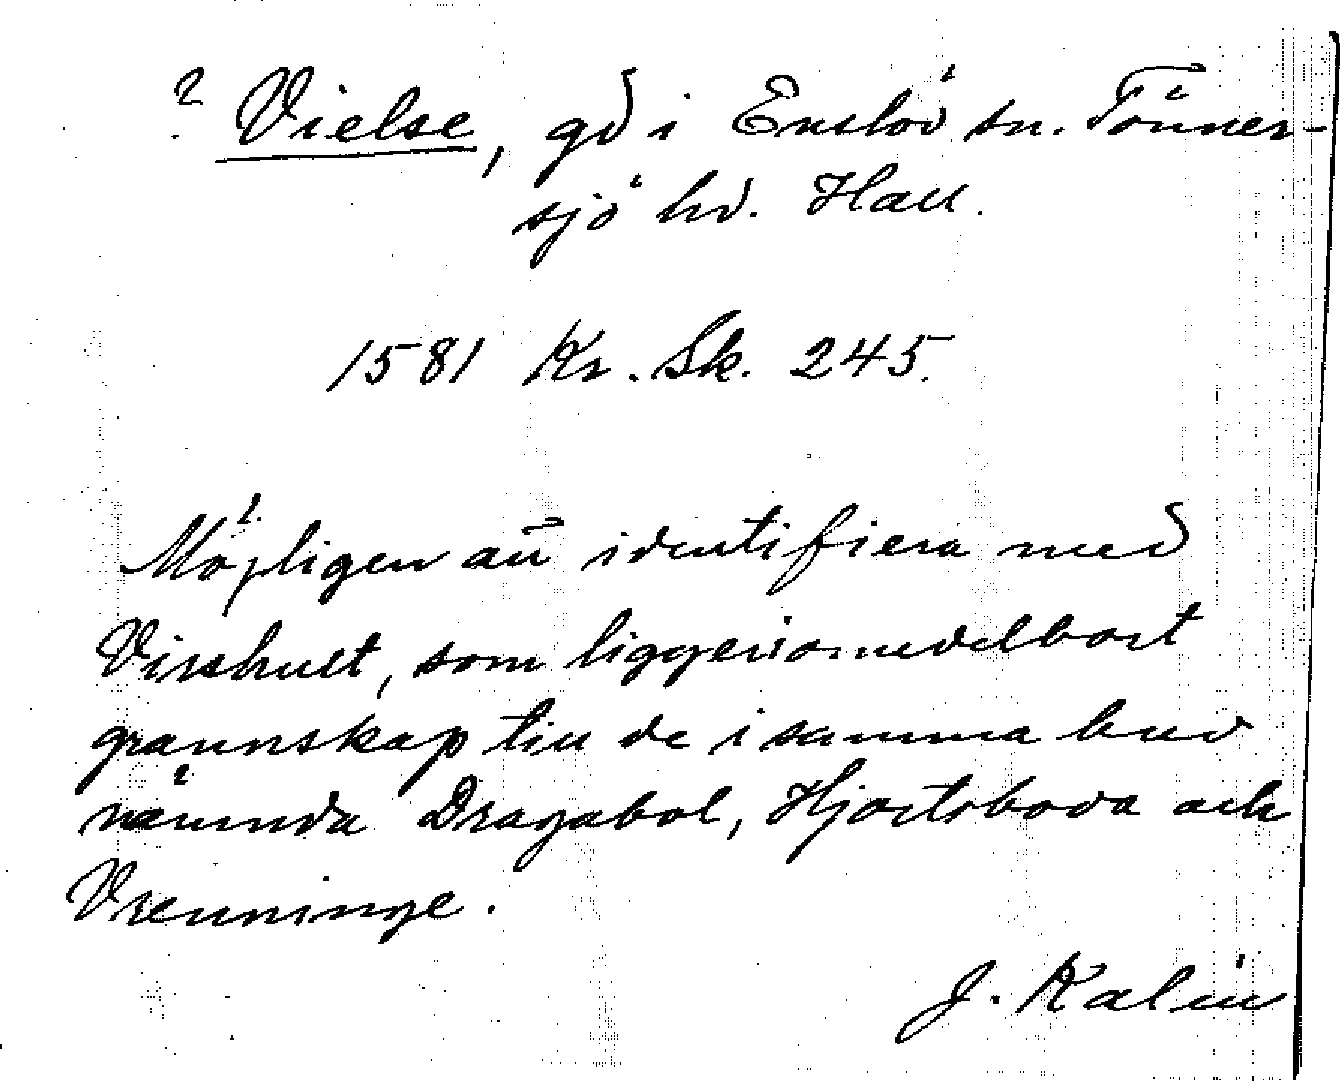 ? Vielse, gd i Enslöv sn. Tönner-
sjö hd. Hall.
1581 Kr. Sk. 245.
Möjligen att identifiera med
Virshult, som ligger i omedelbart
grannskap till de i samma brev
nämnda Dragabol, Hjortsboda och
Vrenninge.
J. Kalén